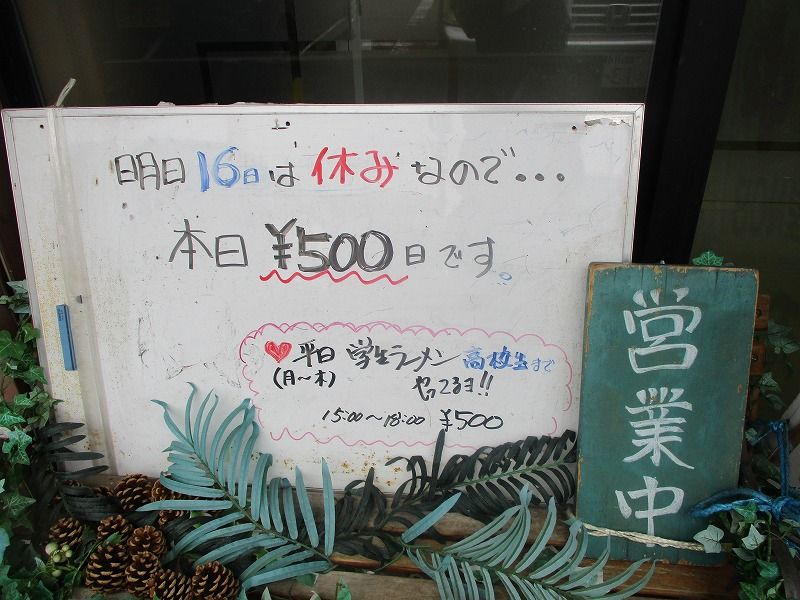 明日16日は休みなので...
本日¥500日です。
平日 学生ラーメン 高校生まで
(月〜木) やってるヨ!!
15:00〜18:00 ¥500
営業中